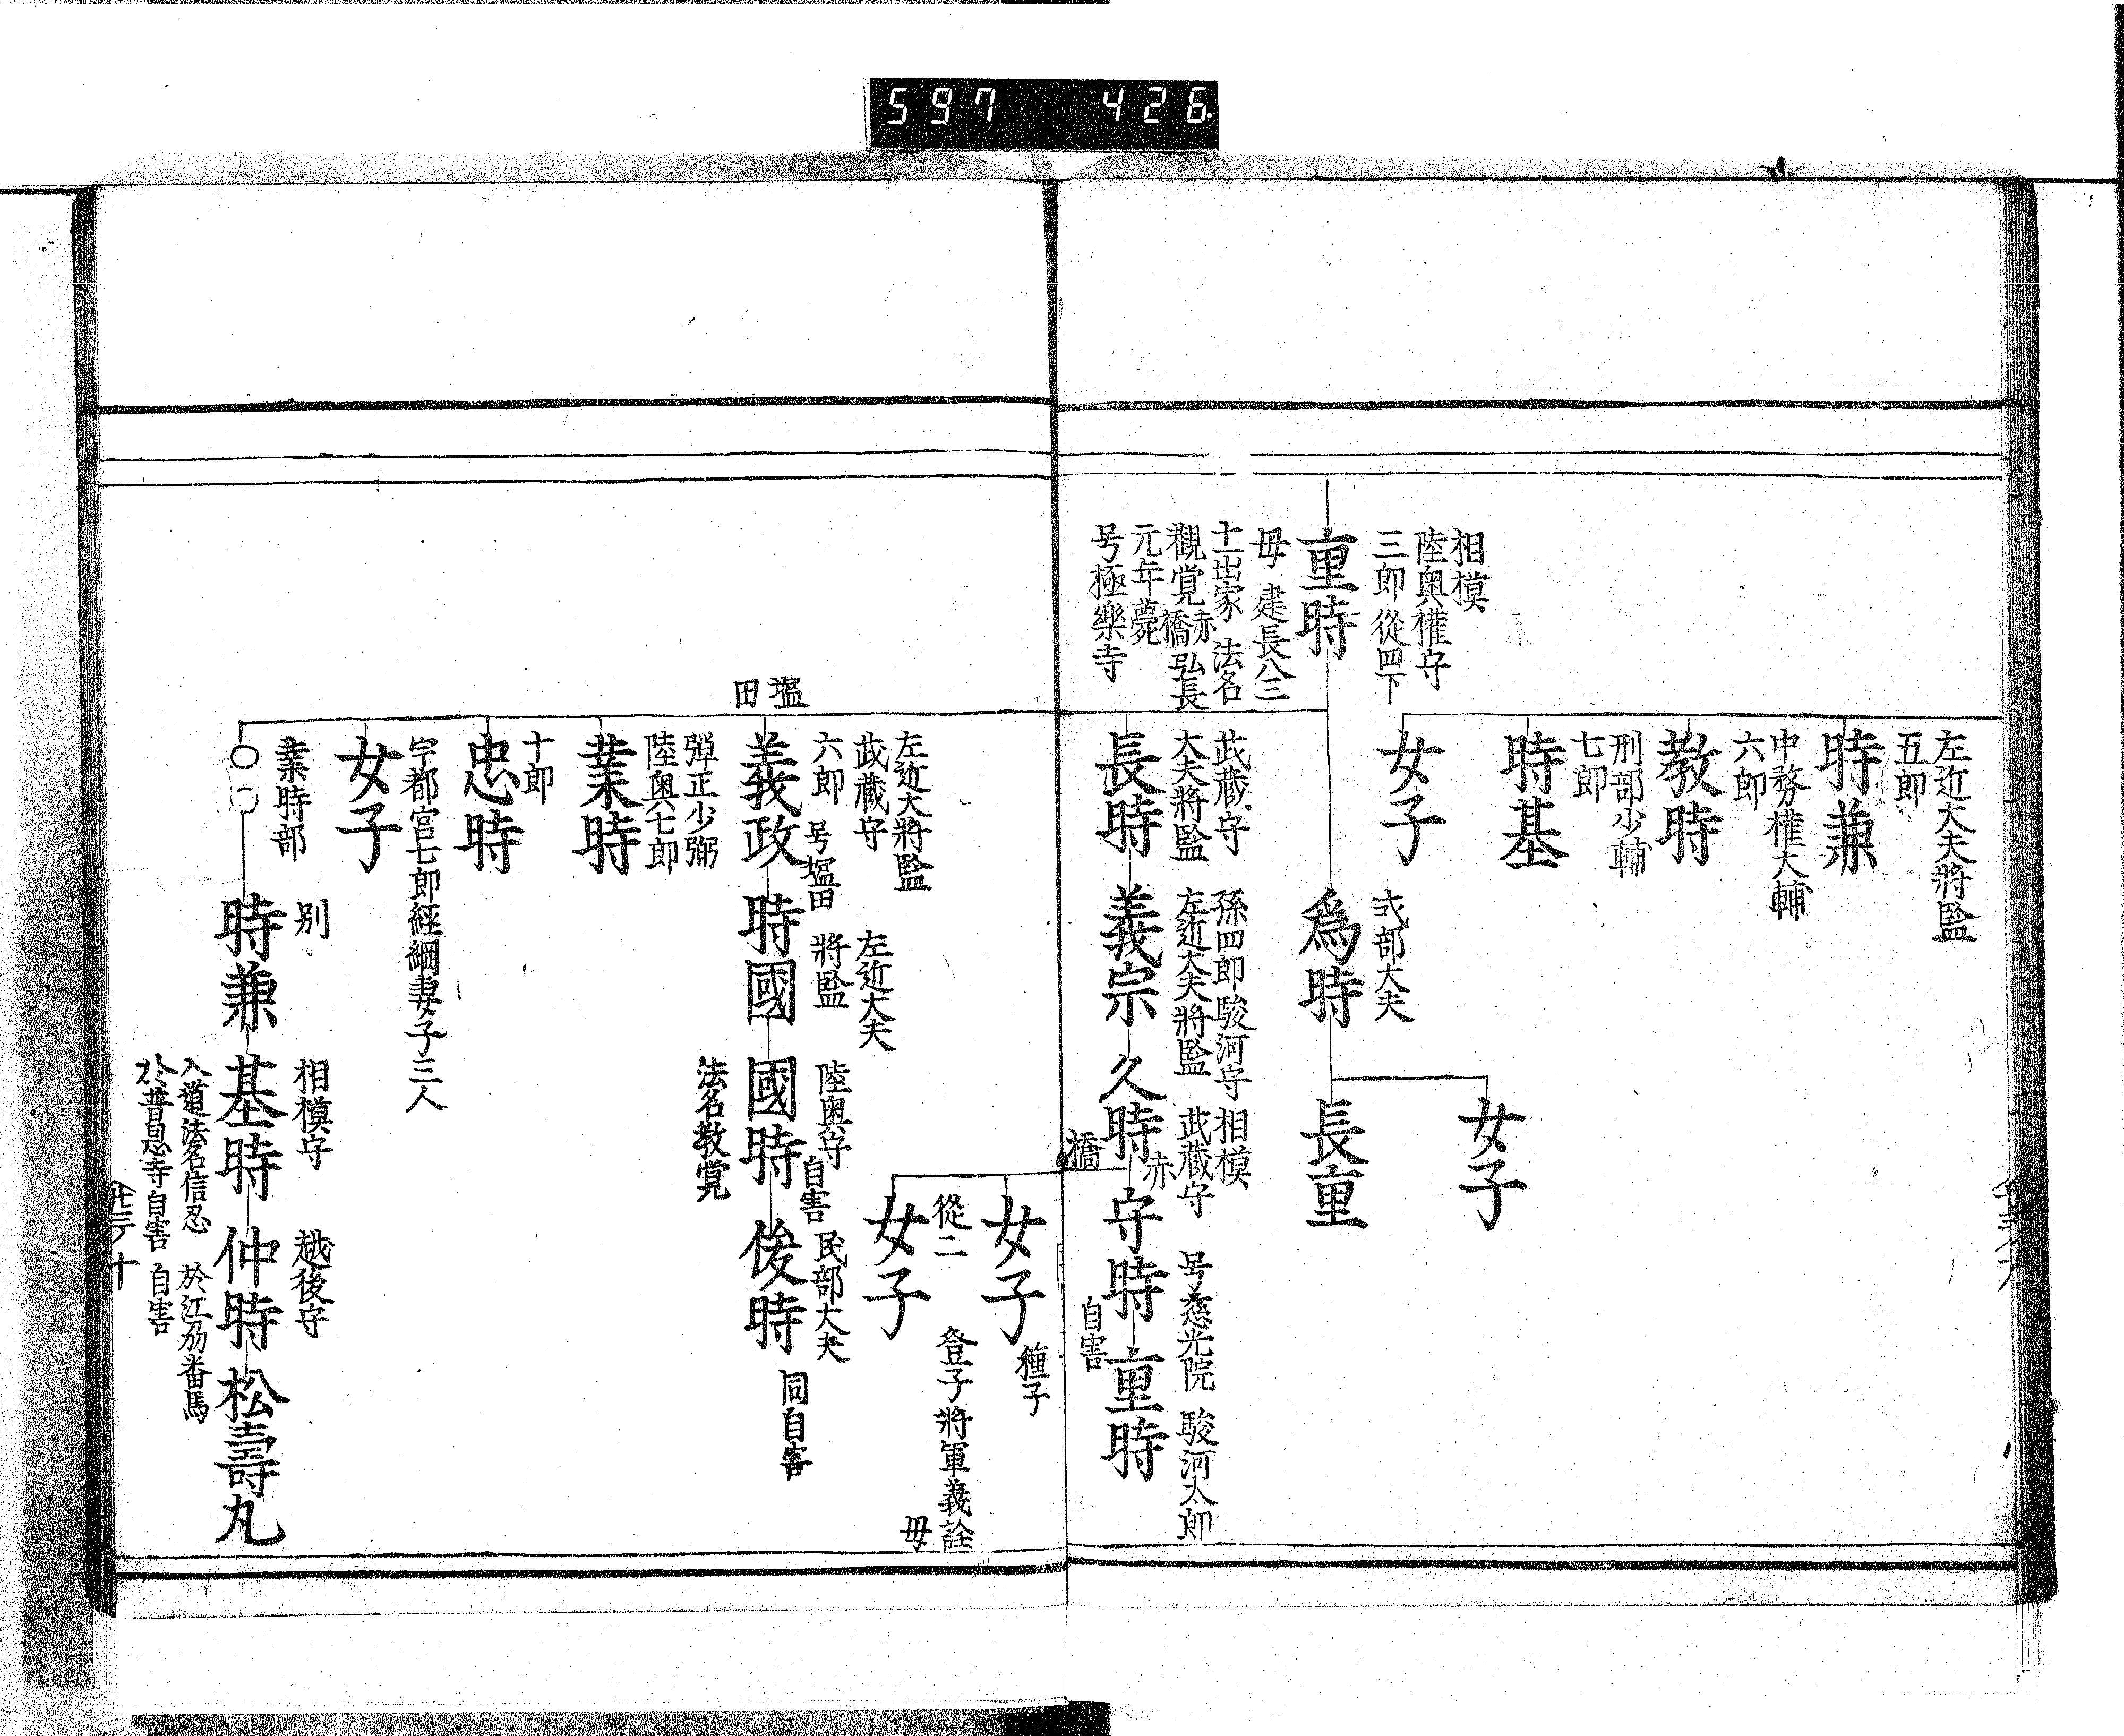 597 426
左近大夫將監
五郎
時兼
中務權大輔
六郎
教時
刑部少輔
七郎
時基
女子
相模
陸奥權守
三郎從四下
重時
毋 建長八三
十一出家 法名
觀覚 赤橋 弘長
元年薨
号極樂寺
女子
式部大夫
爲時
長重
武蔵守
大夫將監
長時
孫四郎駿河守
左近大夫將監
義宗
相模
武蔵守
久時
赤橋
号慈光院
守時
自害
駿河太郎
重時
女子
種子
從二
登子將軍義詮
毋
女子
塩田
左近大將監
武蔵守
六郎 号塩田
義政
左近大夫
將監
時國
陸奥守
自害
國時
法名教覚
民部大夫
俊時
同自害
彈正少弼
陸奥七郎
業時
十郎
忠時
宇都宮七郎経綱妻子三人
女子
業時部
〇〇
別
時兼
相模守
基時
入道法名信忍
於普恩寺自害
越後守
仲時
於江刕番馬
自害
松壽丸